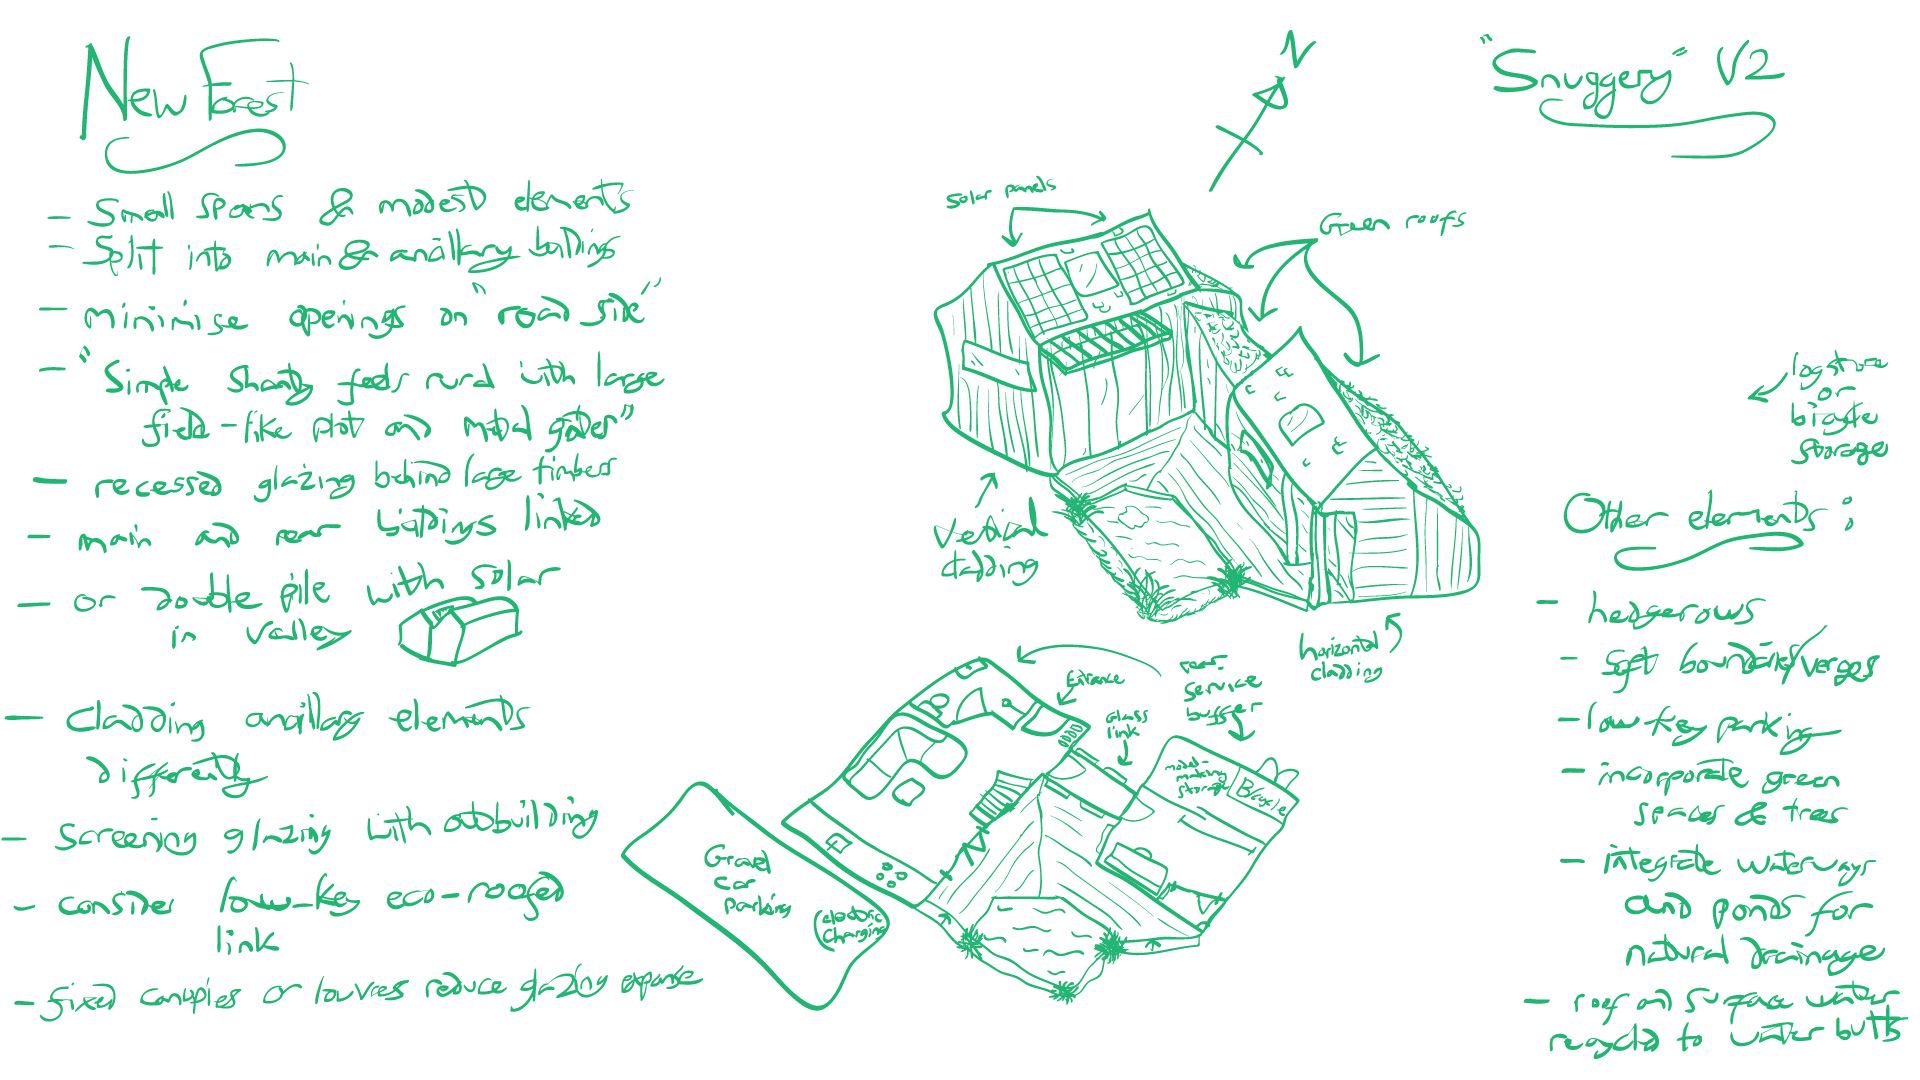 New Forest
- Small spans & modest elements
- Split into main & ancillary buildings
- minimise openings on "road side"
- "Simple Shanty feels rural with large
field-like plot and metal gates"
- recessed glazing behind large timbers
- main and rear buildings linked
- or double pile with solar
in valley
- Cladding ancillary elements
differently
- Screening glazing with outbuilding
- consider low-key eco-roofed
link
- fixed canopies or louvres reduce glazing expanse
N
Solar panels
Green roofs
Vertical
cladding
horizontal
cladding
Entrance
Glass
link
rear
service
buffer
model-
making
storage
Bicycle
Gravel
car
parking
electric
charging
"Snuggery" V2
logstore
or
bicycle
storage
Other elements:
- hedgerows
- soft boundaries/verges
- low-key parking
- incorporate green
spaces & trees
- integrate waterways
and ponds for
natural drainage
- roof and surface water
recycled to water butts